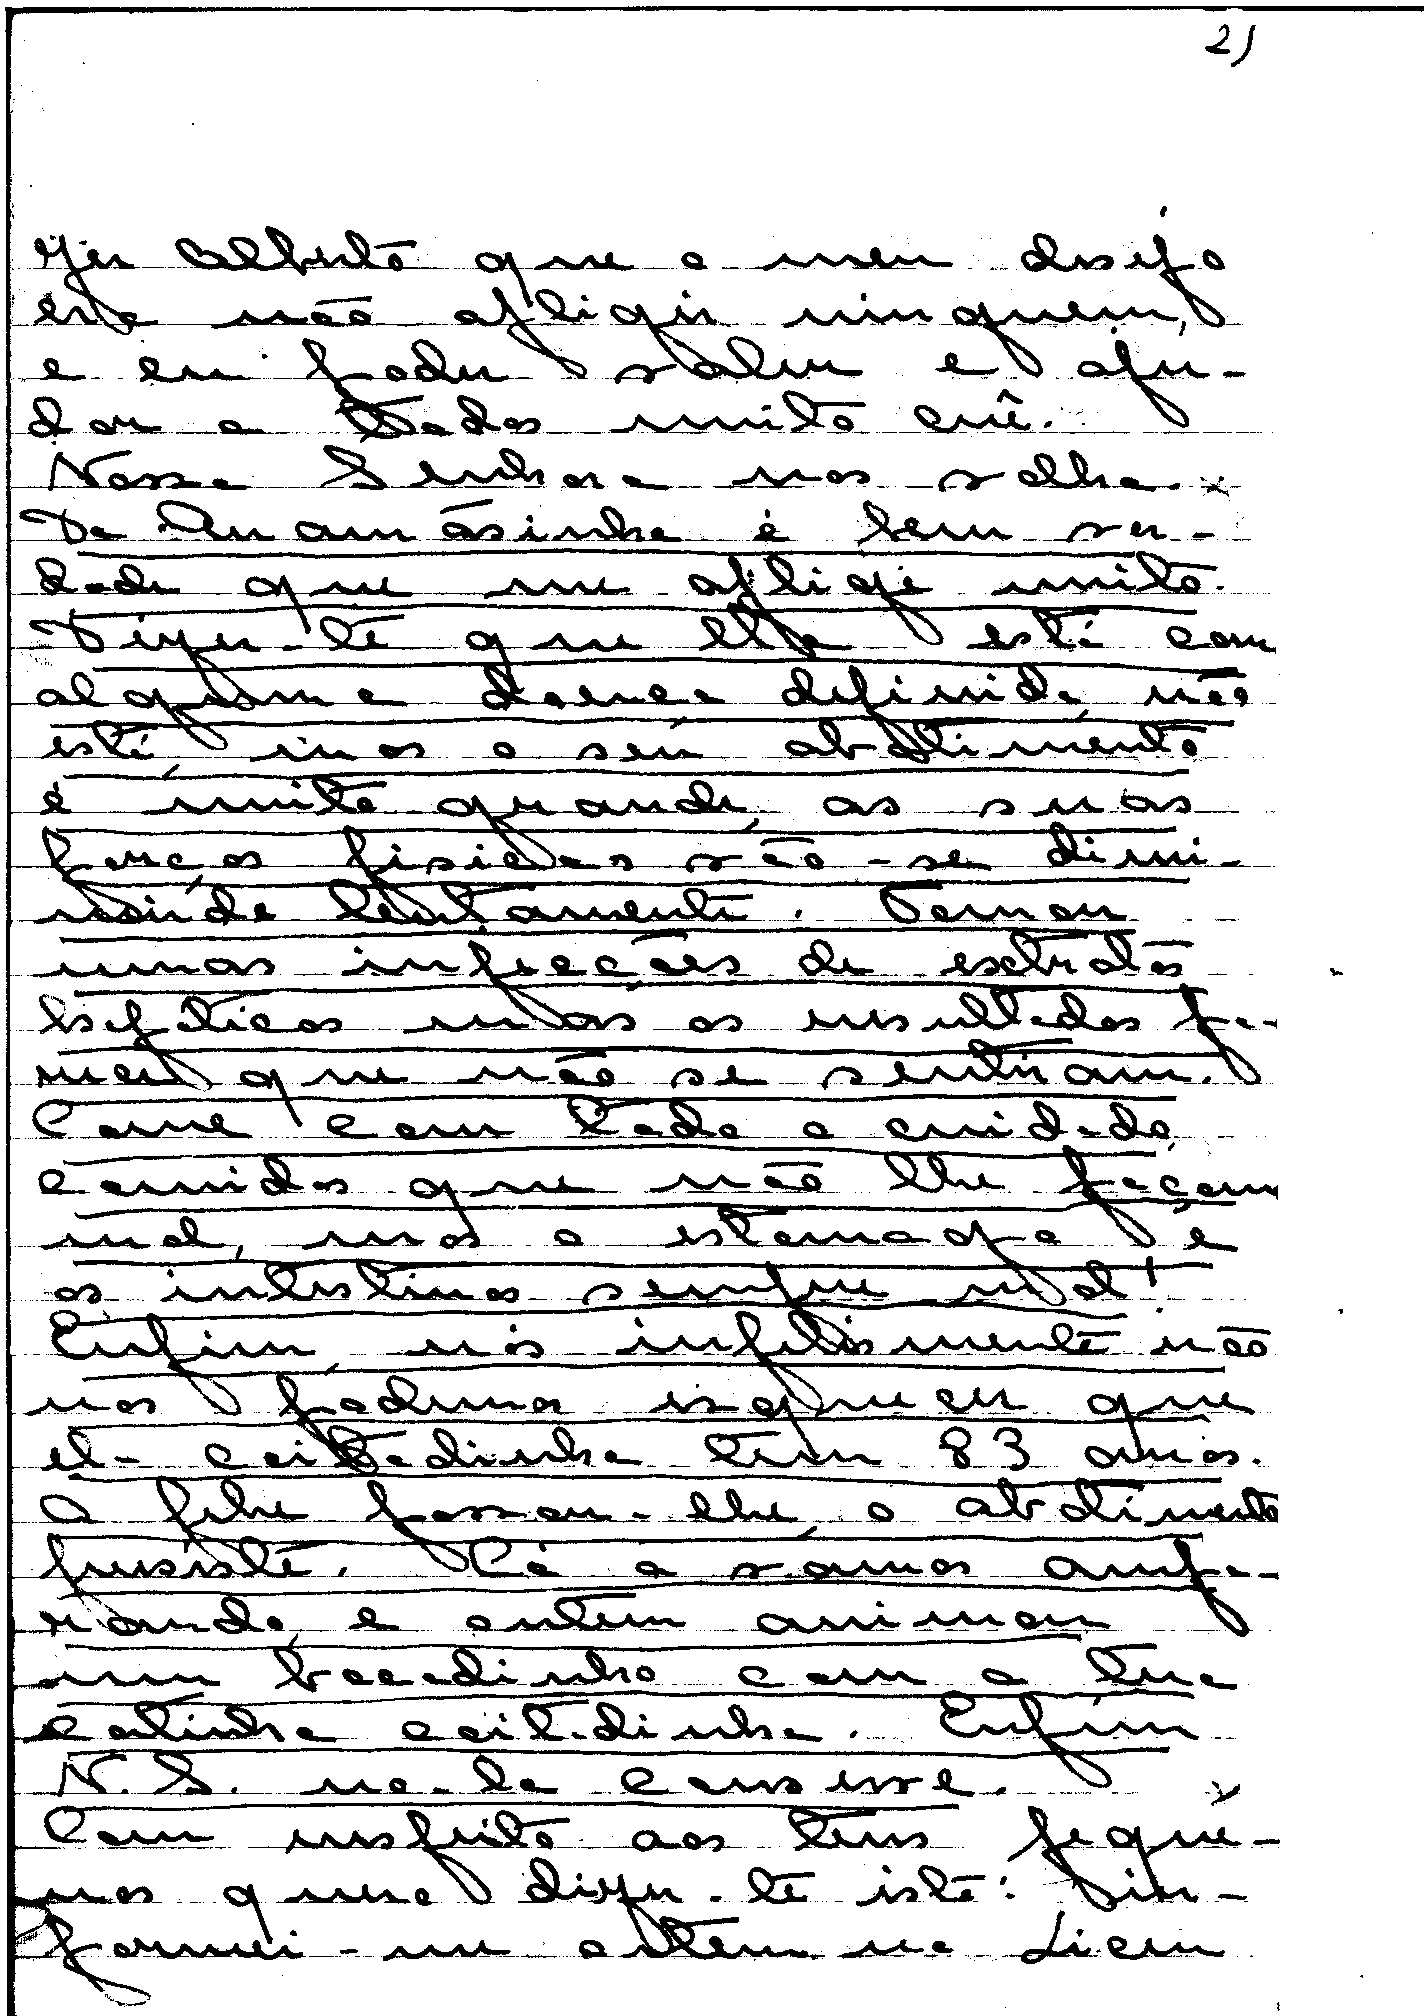 2)
zer Alberto que o meu desejo
era não afligir ninguem,
e eu poder valer e aju-
dar a todos muito crê.
Nossa Senhora nos valha.
Da Mamãsinha é bem ver-
dade que me aflige muito.
Dizer-te que ella está com
alguma doença definida não
está, mas o seu abatimento
é muito grande, as suas
forças fisicas vão-se dimi-
nuindo lentamente. Tomou
umas infecções de extratos
hepáticos mas os resultados pa-
rece que não se sentiram.
Come com todo o cuidado,
comidas que não lhe façam
mal, mas o estomago e
os intestinos sempre mal!
Enfim nós infelismente não
nos podemos esquecer que
el- coitadinha tem 83 anos.
A febre passou-lhe o abatimento
persiste. Cá a vamos ampa-
rando e ontem animou
um bocadinho com a tua
cartinha coitadinha. Enfim
N. S. no-la conserve.
Com respeito aos teus peque-
nos quero dizer-te isto: in-
formei-me ontem no Liceu